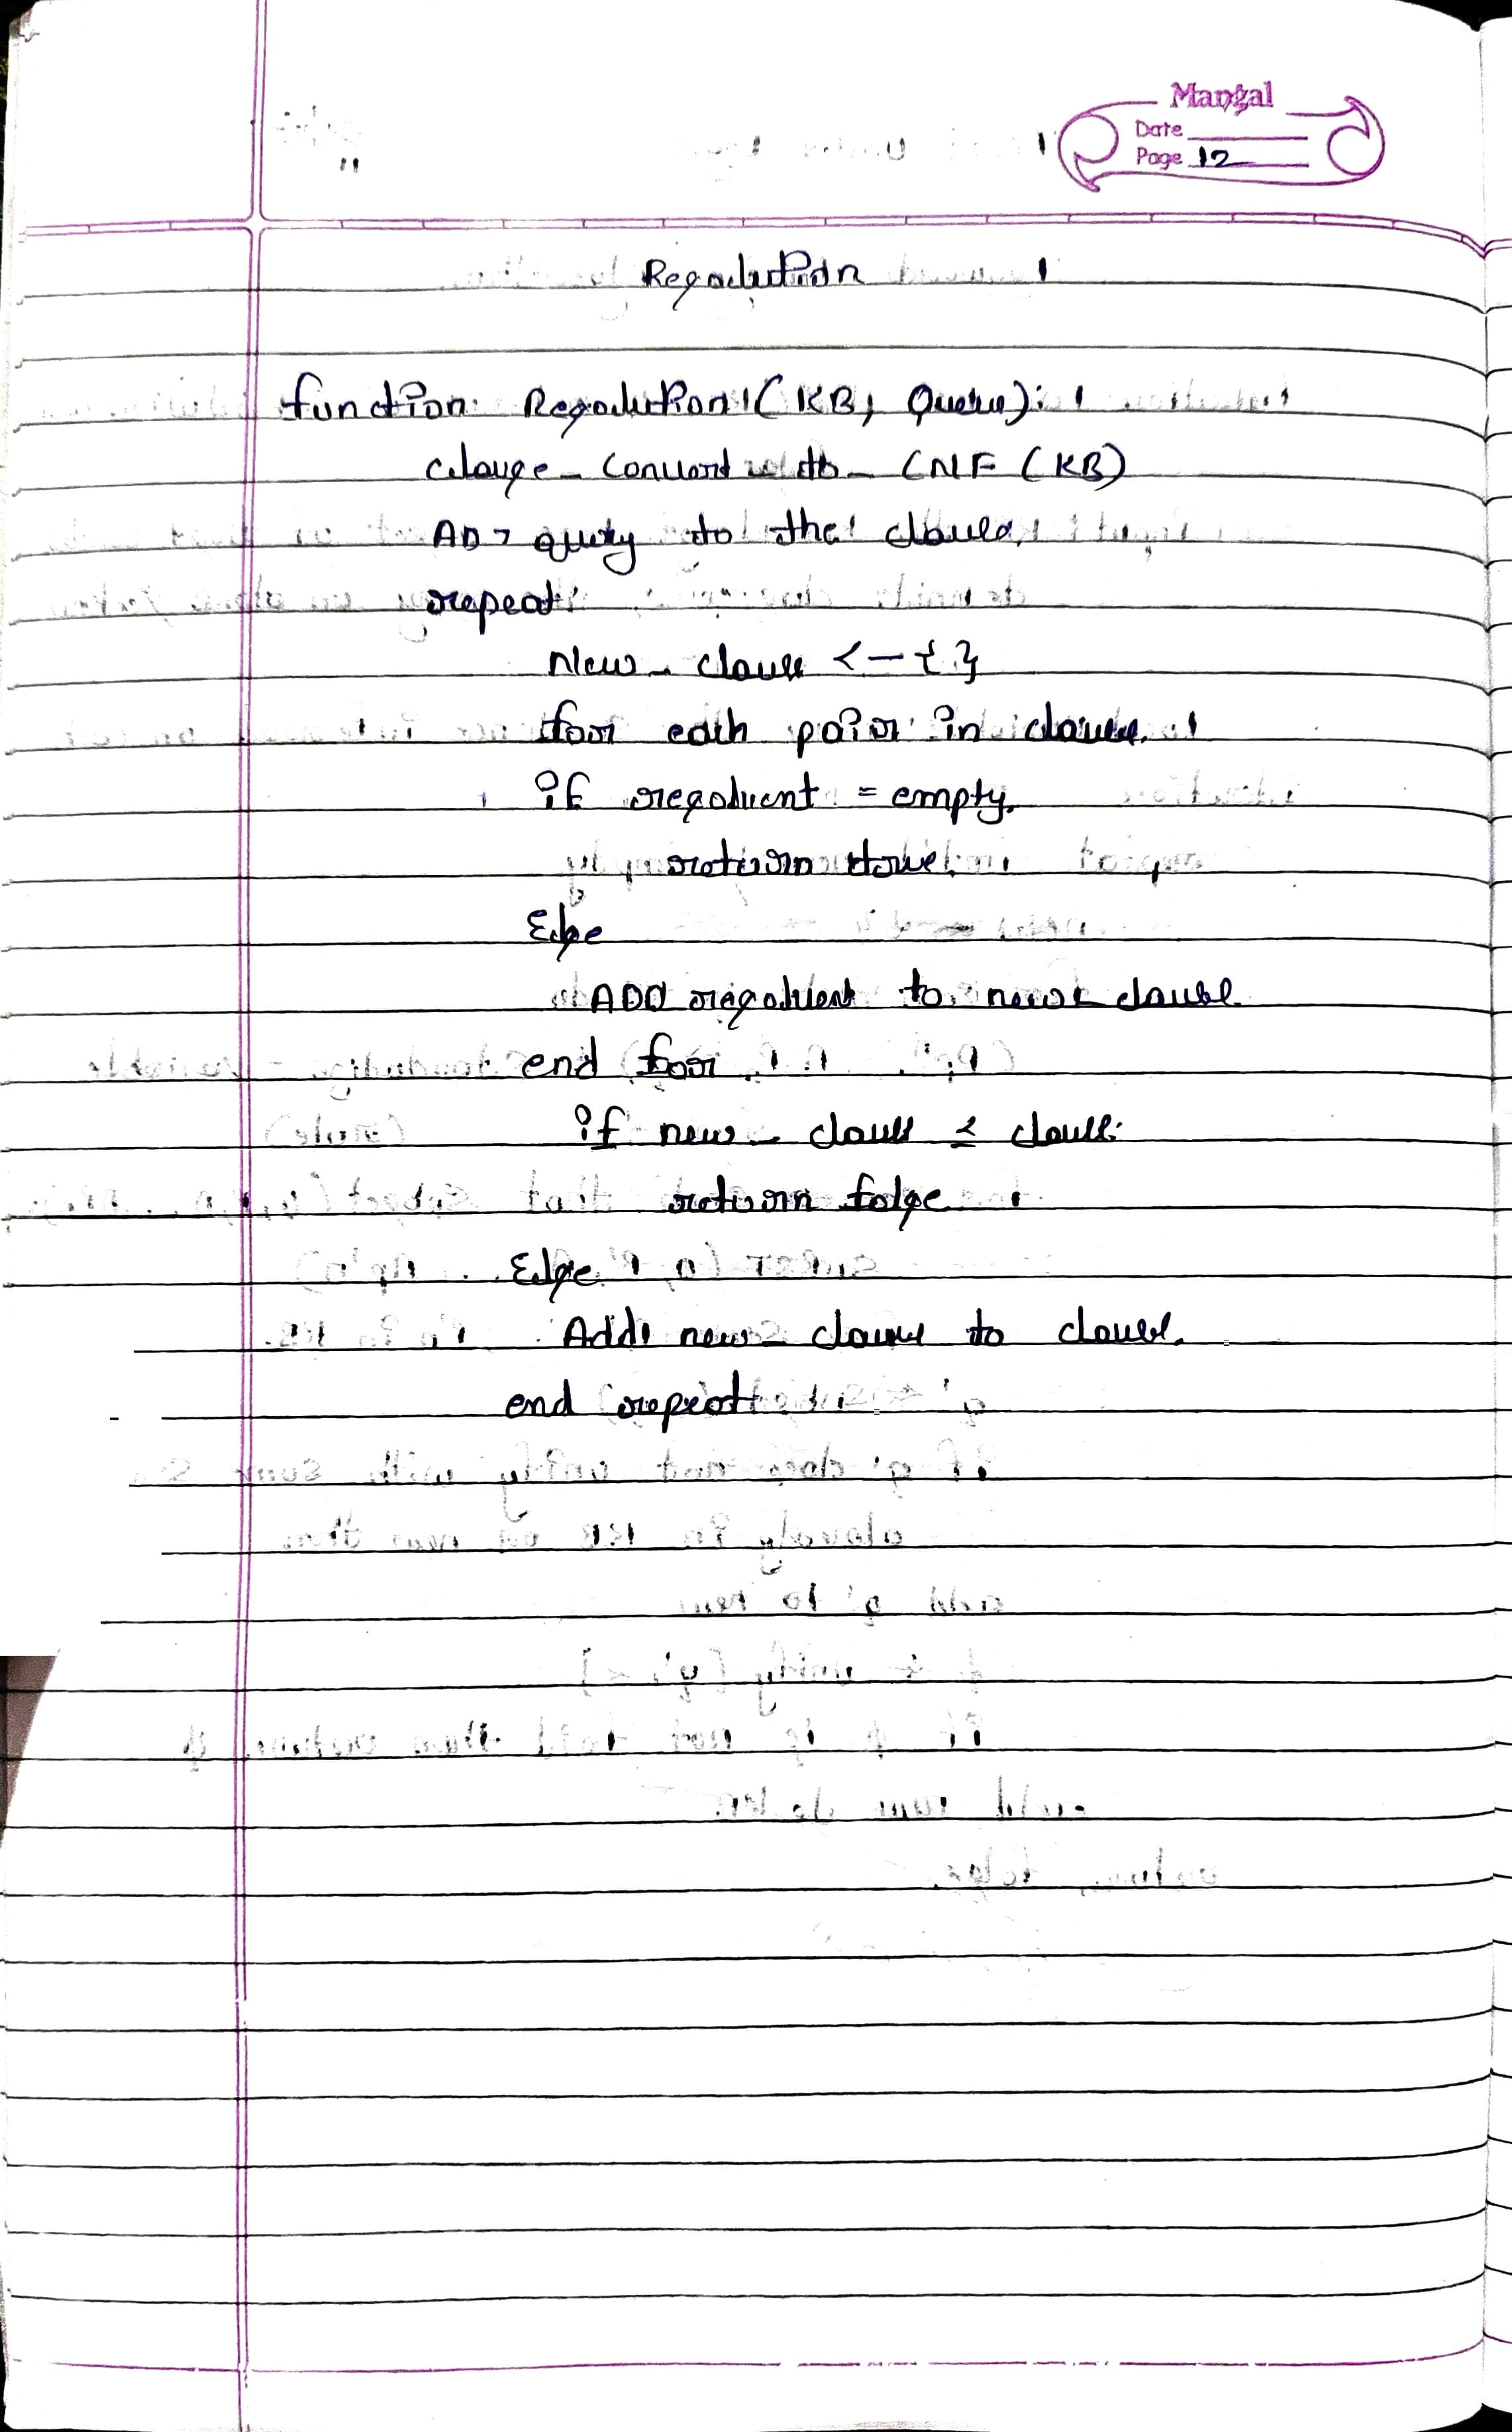 Mangal
Date
Page 12
Resolution
function Resolution (KB, Queru):
clause - Convert to - CNF (KB)
AD7 query to the clause.
repeat
New - clause <- { }
for each pair in clause.
if resolvent = empty.
return true.
Else
ADD resolvent to new clause
end for
if new - clause ≤ clause.
return false
Else
Add new - clause to clause.
end repeat